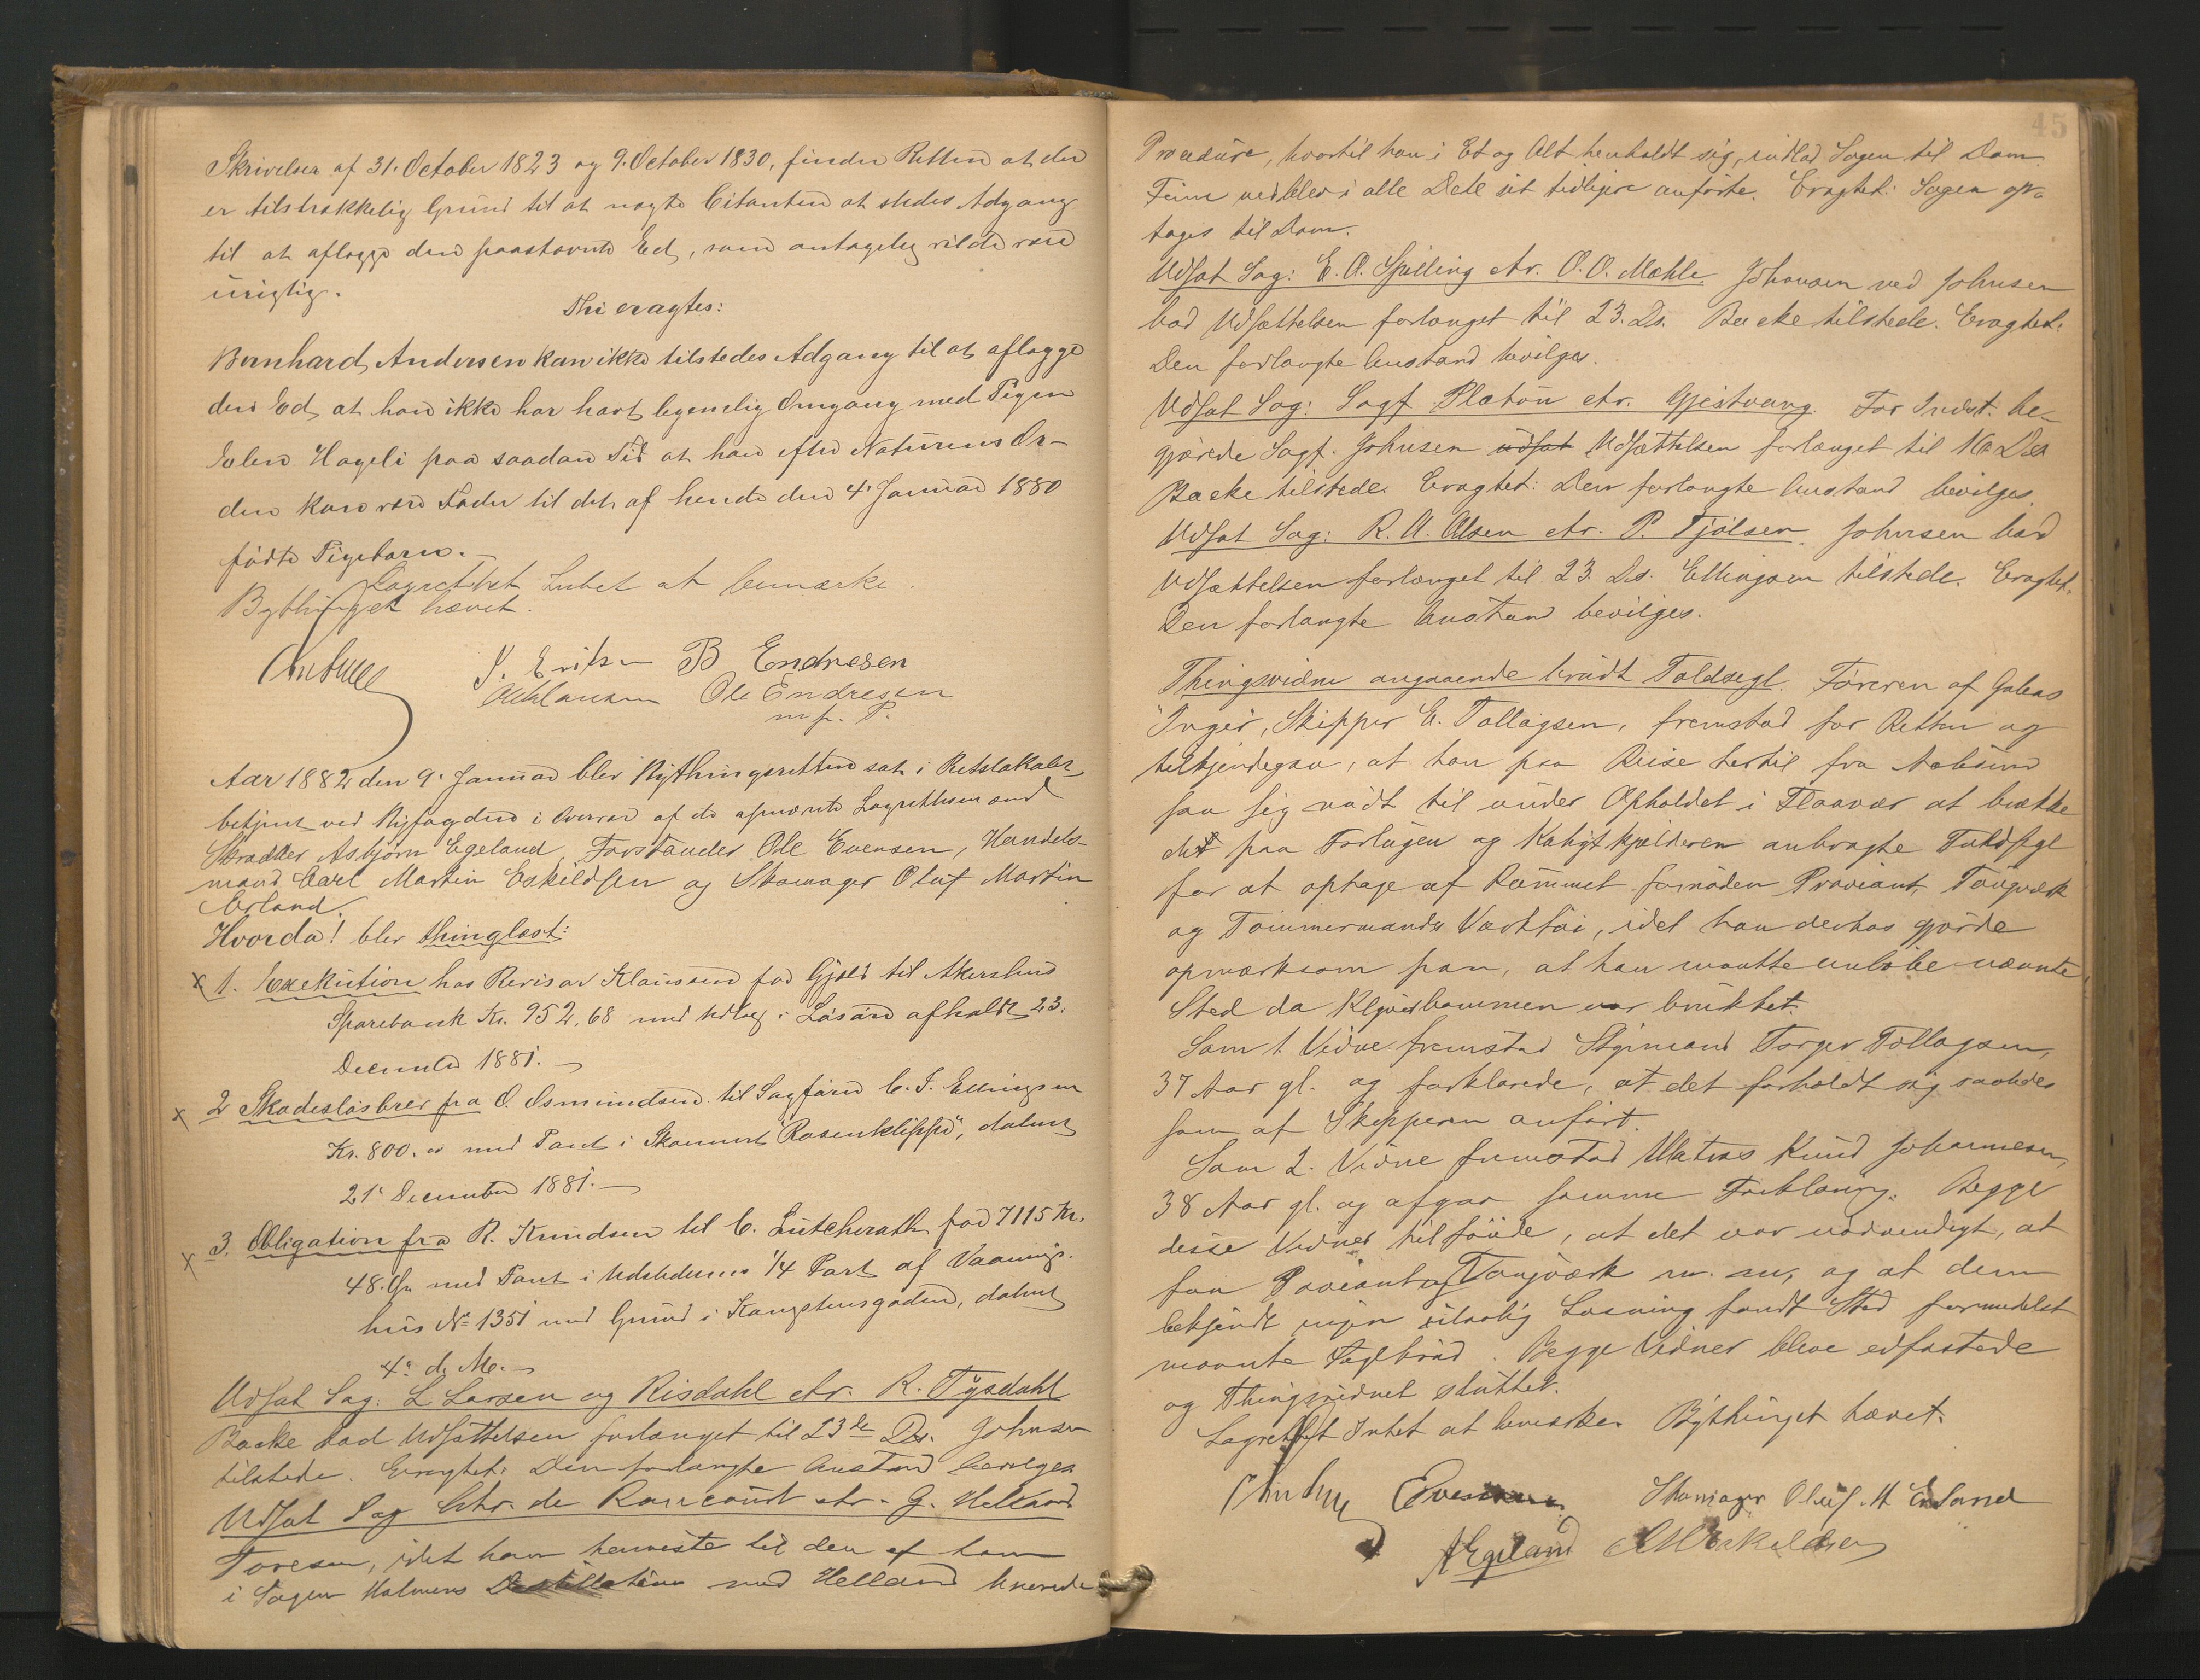 Skrivelser af 31. October 1823 og 9. October 1830, finder Retten at der
er tilstrækkelig Grund til at nægte Citanten at stedes Adgang
til at aflægge den paastævnte Ed, som antagelig vilde være
urigtig.
Thi eragtes:
Bernhard Andersen kan ikke tilstedes Adgang til at aflægge
den Ed, at han ikke har havt legemelig Omgang med Pigen
Elen Hageli paa saadan Tid at han efter Naturens Or-
den kan være Fader til det af hende den 4. Januar 1880
födte Pigebarn.
Lagrettet Intet at bemærke.
Bythinget hævet.
B Endresen
Ole Endresen
m. f. P.
Aar 1882 den 9. Januar blev Bythingsretten sat i Retslokalet
betjent ved Byfogden i Overvær af de opnævnte Lagrettesmænd
Skrædder Asbjörn Egeland, Forstander Ole Evensen, Handels-
mand Carl Martin Eskildsen og Skomager Oluf Martin
Erland.
Hvorda! blev thinglæst:
x 1. Exekution hos Revisor Klaussen for Gjæld til Akershus
Sparebank Kr. 952,68 med Udlæg i Lösöre afholdt 23.
December 1881.
x 2 Skadeslösbrev fra O. Osmundsen til Sagförer C. F. Ellingsen
Kr. 800. med Pant i Skonnert "Rosenklippe", dateret
21. December 1881.
x 3. Obligation fra R. Knudsen til C. Lütcherath for 7115 Kr.
48. Ör med Pant i Udstederens 1/4 Part af Vaanings-
hus No 1351 med Grund i Kongstensgaden, dateret
4. d. M.
Udsat Sag: L Larsen og Risdahl ctr. R. Tysdahl
Backe bad Udsættelsen forlænget til 23de Ds. Johnsen
tilstede. Eragtet: Den forlangte Anstand bevilges
Udsat Sag Schr. de Rancourt ctr. G. Helland
Toresen, idet han henviste til den af ham
i Sagen Malmens Destillation mod Helland leverede
45
Procedure, hvortil han i Et og Alt henholdt sig, indlod Sagen til Dom.
Feim vedblev i alle Dele sit tidligere anförte. Eragtet: Sagen op-
tages til Dom.
Udsat Sag: E. A. Spilling ctr. O. O. Mæhle. Johansen ved Johnsen
bad Udsættelsen forlænget til 23. Ds. Backe tilstede. Eragtet:
Den forlangte Anstand bevilges.
Udsat Sag: Sagf Platou ctr. Gjestvang. For Indst. be-
gjærede Sagf. Johnsen udsat Udsættelsen forlænget til 16de Ds.
Backe tilstede. Eragtet: Den forlangte Anstand bevilges.
Udsat Sag: R. A. Olsen ctr. P. Tjölsen. Johnsen bad
Udsættelsen forlænget til 23. Ds. Ellingsen tilstede. Eragtet:
Den forlangte Anstand bevilges.
Thingsvidne angaaende brudt Toldsegl. Föreren af Galeas
"Inger", Skipper E. Tollagsen, fremstod for Retten og
tilkjendegav, at han paa Reise hertil fra Aalesund
saa sig nödt til under Opholdet i Flaavær at brække
det paa Forlugen og Kahytkjælderen anbragte Toldsegl
for at optage af Rummet fornöden Proviant, Tougværk
og Tömmermands Værktöi, idet han derhos gjorde
opmærksom paa, at han maatte anlöbe nævnte
Sted da Klyverbommen var brukket.
Som 1. Vidne fremstod Styrmand Torger Tollagsen,
37 Aar gl. og forklarede, at det forholdt sig saaledes
som af Skipperen anfört.
Som 2. Vidne fremstod Matros Knud Johannesen,
38 Aar gl. og afgav samme Forklaring. Begge
disse Vidner tilföiede, at det var nödvendigt, at
faa Proviant og Tougværk m. m., og at dem
bekjendt ingen ulovlig Losning fandt Sted formedelst
nævnte Seglbrud. Begge Vidner bleve edfæstede
og Thingsvidnet sluttet.
Lagrettet Intet at bemærke. Bythinget hævet.
Evensen. Skomager Oluf. M Erland
A Egeland CM Eskildsen